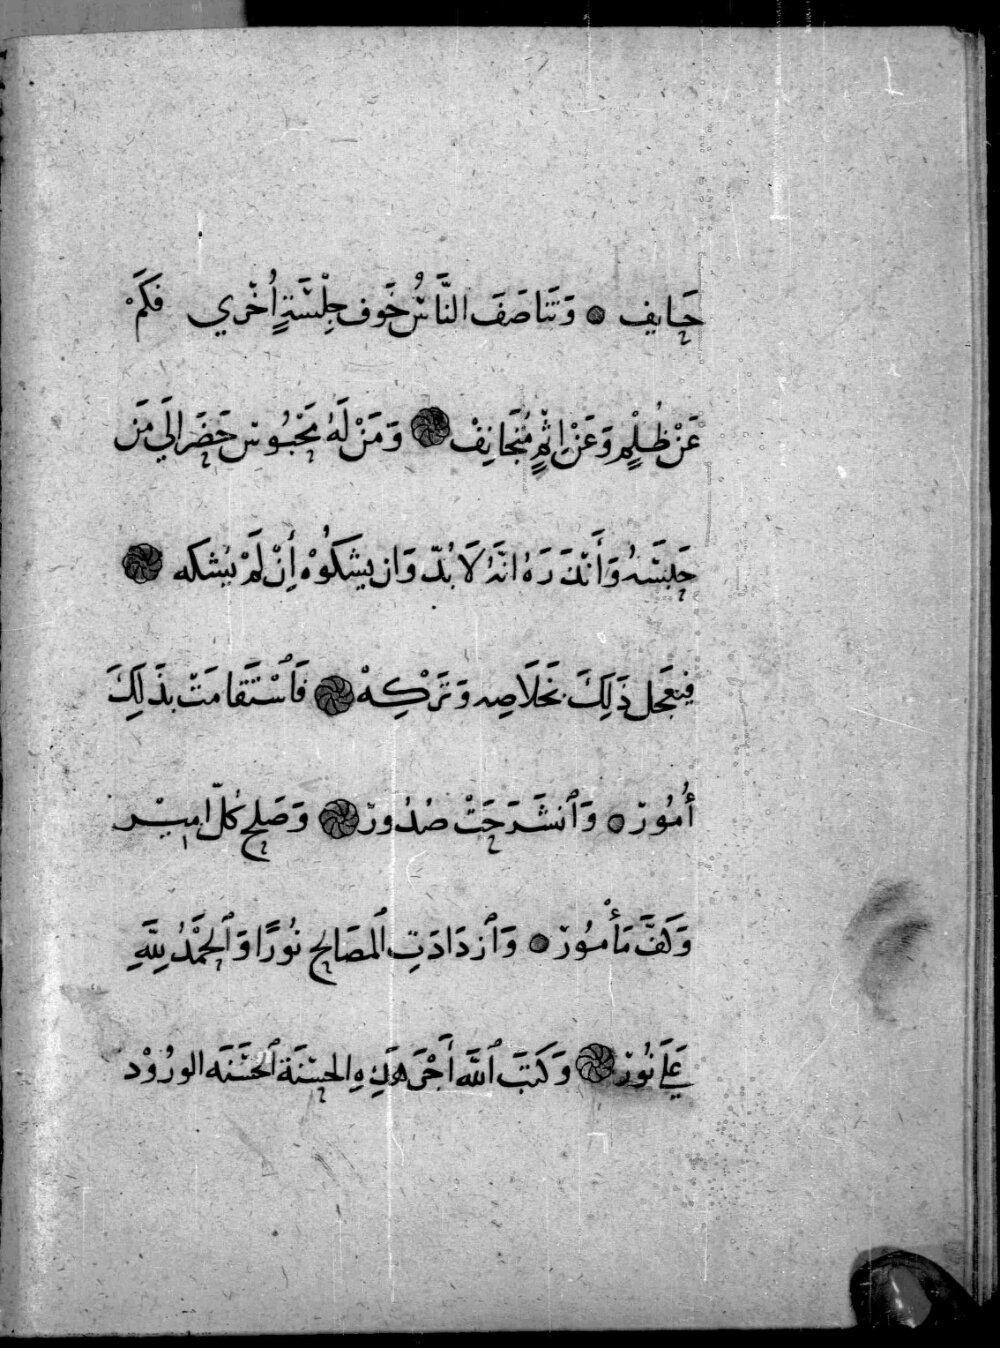 حَايِف ۝ وَتَنَاصَفَ النَّاسُ خَوف جِلْسَةٍ اُخْرٰي فَكَمْ
عَنْ ظُلْمٍ وَعَنْ اِثْمٍ مُتَجَانِفْ ۝ وَمَنْ لَهُ مَحْبُوسْ حَضَرَ اِلَي مَن
حَبَسَهُ وَأَنْذَرَهُ انَّهُ لَا بُدّ وَان يشكُوْهُ إِنْ لَمْ يُشكه ۝
فيعَجل ذَلِكَ بخَلَاصِهِ وَتَرْكِهْ ۝ فَٱسْتَقَامَتْ بذَلِكَ
أُمُورْ ۝ وَٱنشَرَحَتْ صُدُورْ ۝ وَصَلحَ كُلّ امِيْر
وَكَفَّ مَأْمُورْ ۝ وَٱزدَادَتِ ٱلمصَالح نُورًا وَٱلحَمْدُ لِلَّهِ
عَلَي نُورْ ۝ وَكَتَبَ ٱللَّه أَجْرَ هَذِهِ الحسَنَة ٱلحَسَنَه الورُوْد